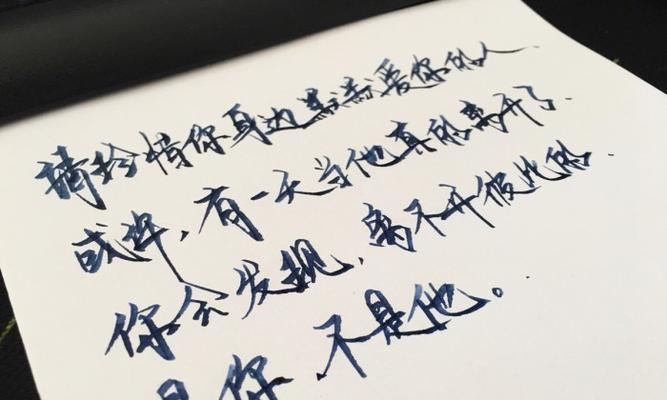 请珍惜你身边默默爱你的人
或许,有一天当他真的离开了
你会发现,离不开彼此的
是你,不是他。